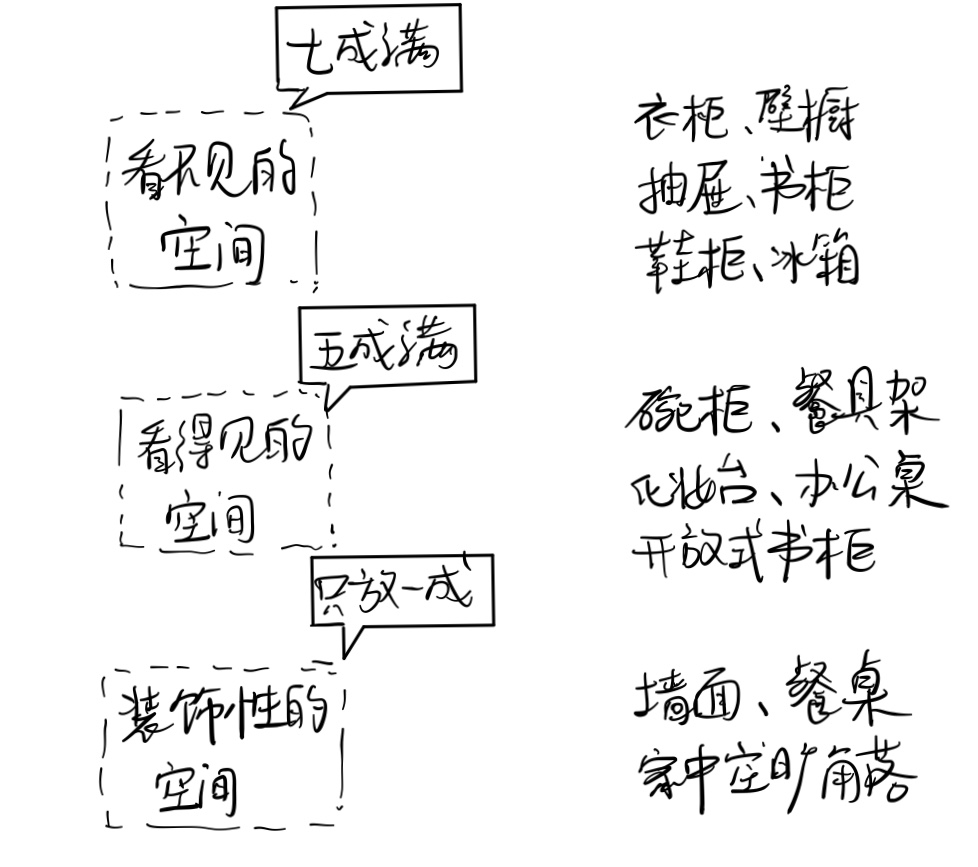 七成满
看不见的
空间
衣柜、壁橱
抽屉、书柜
鞋柜、冰箱
五成满
看得见的
空间
碗柜、餐具架
化妆台、办公桌
开放式书柜
只放一成
装饰性的
空间
墙面、餐桌
家中空旷角落